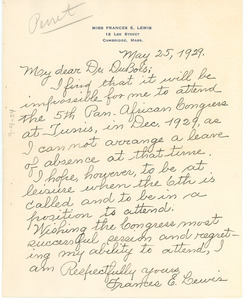 Perret
MISS FRANCES E. LEWIS
12 LEE STREET
CAMBRIDGE, MASS.
May 25, 1929.
My dear Dr. DuBois;
I find that it will be
impossible for me to attend
the 5th Pan. African Congress
at Tunis, in Dec. 1929, as
I can not arrange a leave
of absence at that time.
I hope, however, to be at
leisure when the 6th is
called and to be in a
position to attend.
Wishing the Congress most
successful session and regret-
ing my ability to attend, I
am Respectfully yours,
Frances E. Lewis